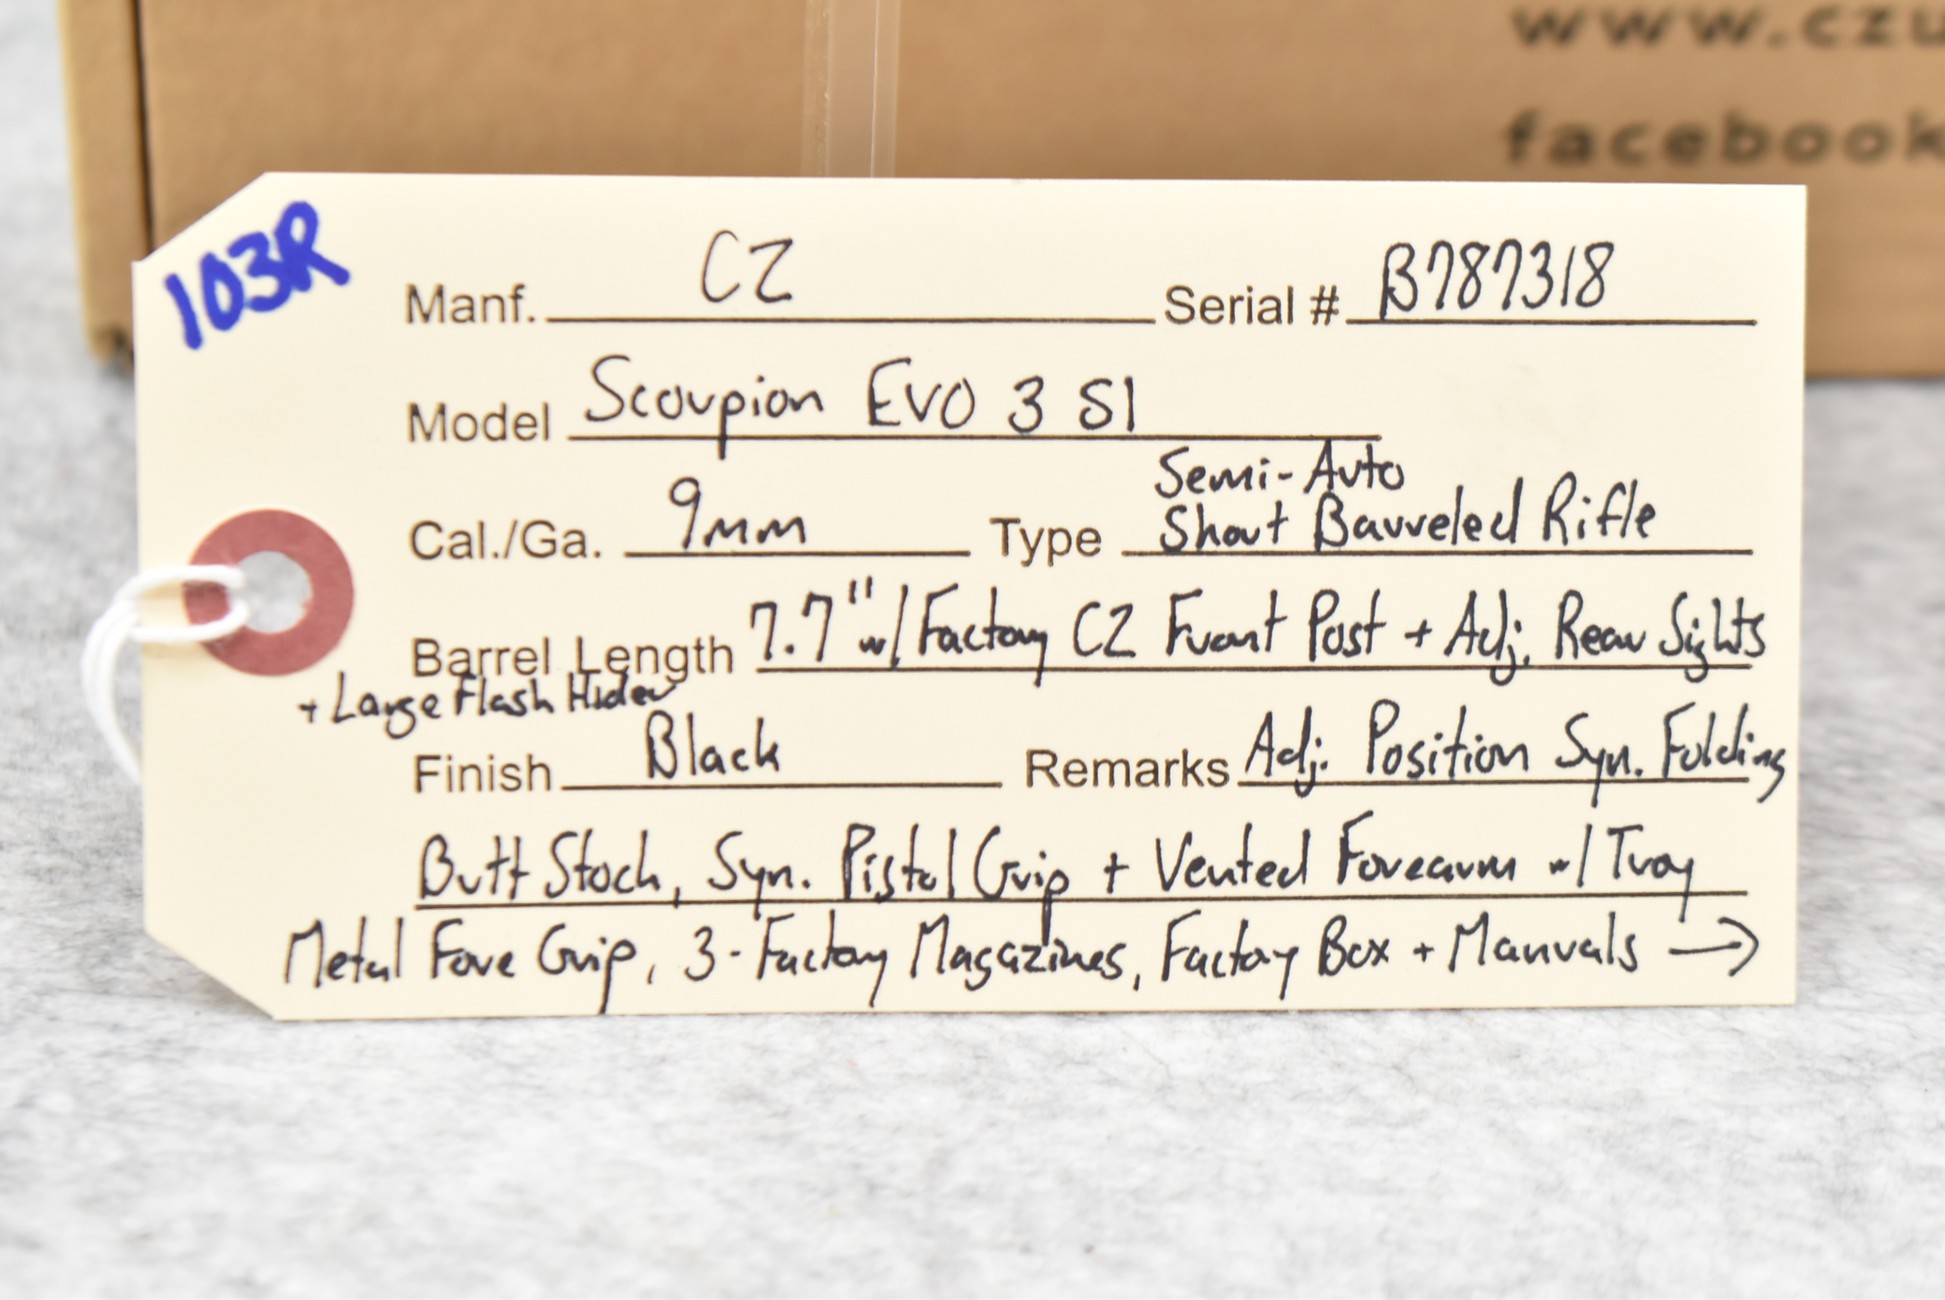 www.czu
facebook
103R
Manf. CZ Serial # B787318
Model Scorpion EVO 3 S1
Semi-Auto
Cal./Ga. 9mm Type Short Barreled Rifle
Barrel Length 7.7" w/ Factory CZ Front Post + Adj. Rear Sights
+ Large Flash Hider
Finish Black Remarks Adj. Position Syn. Folding
Butt Stock, Syn. Pistol Grip + Vented Forearm w/ Troy
Metal Fore Grip, 3-Factory Magazines, Factory Box + Manuals →